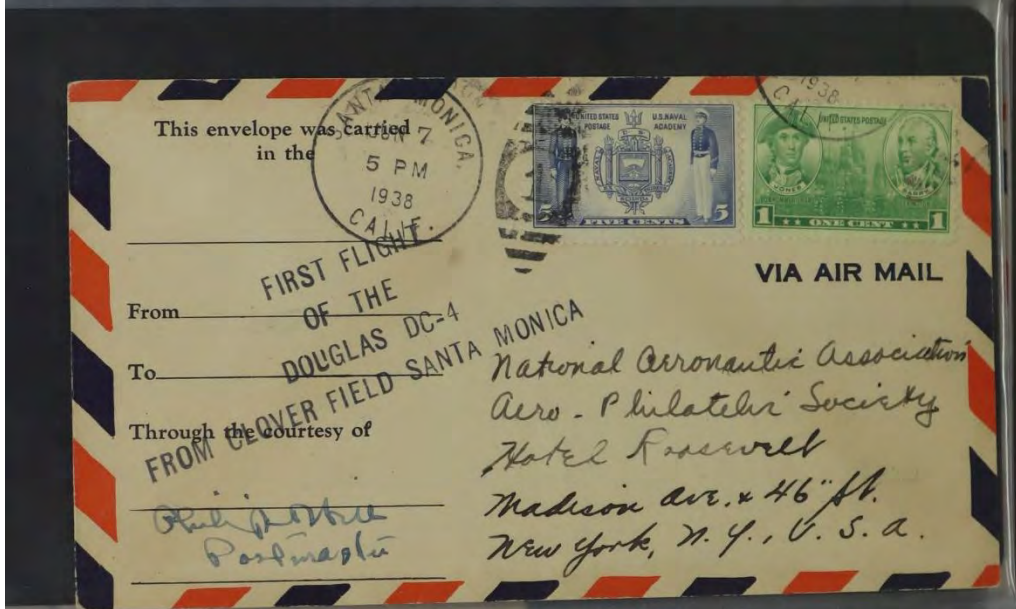 This envelope was carried
in the
SANTA MONICA,
JUN 7
5 PM
1938
CALIF.
UNITED STATES POSTAGE
U.S. NAVAL ACADEMY
5 FIVE CENTS 5
1938
CALIF.
UNITED STATES POSTAGE
JONES
BARRY
1 ONE CENT 1
VIA AIR MAIL
FIRST FLIGHT
OF THE
DOUGLAS DC-4
FROM CLOVER FIELD SANTA MONICA
From
To
Through the courtesy of
Postmaster
National Aeronautic Association
Aero-Philatelic Society
Hotel Roosevelt
Madison Ave. & 46" St.
New York, N. Y., U. S. A.